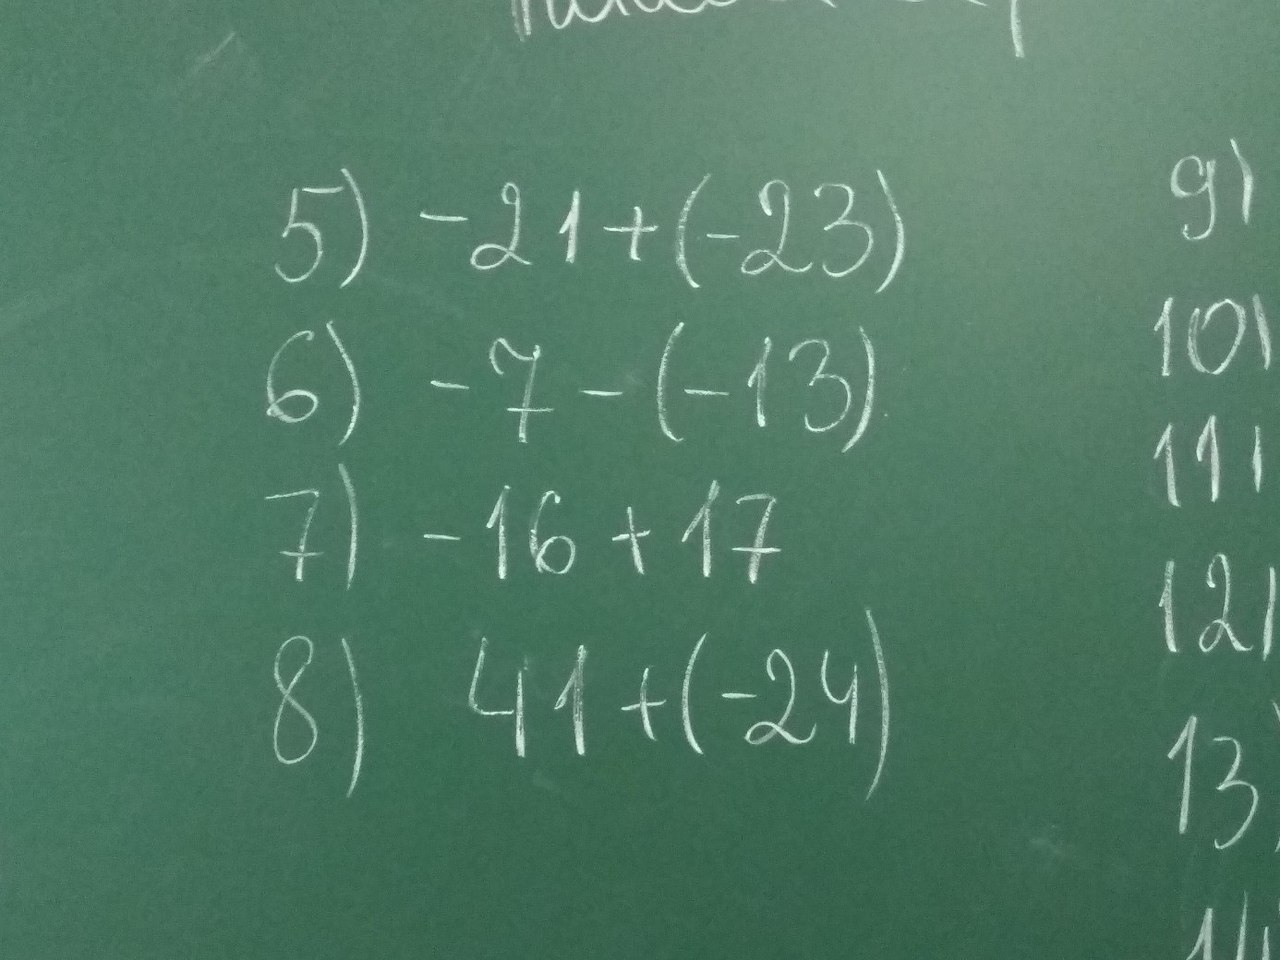 5) -21+(-23)
6) -7-(-13)
7) -16+17
8) 41+(-24)
9)
10)
11)
12)
13)